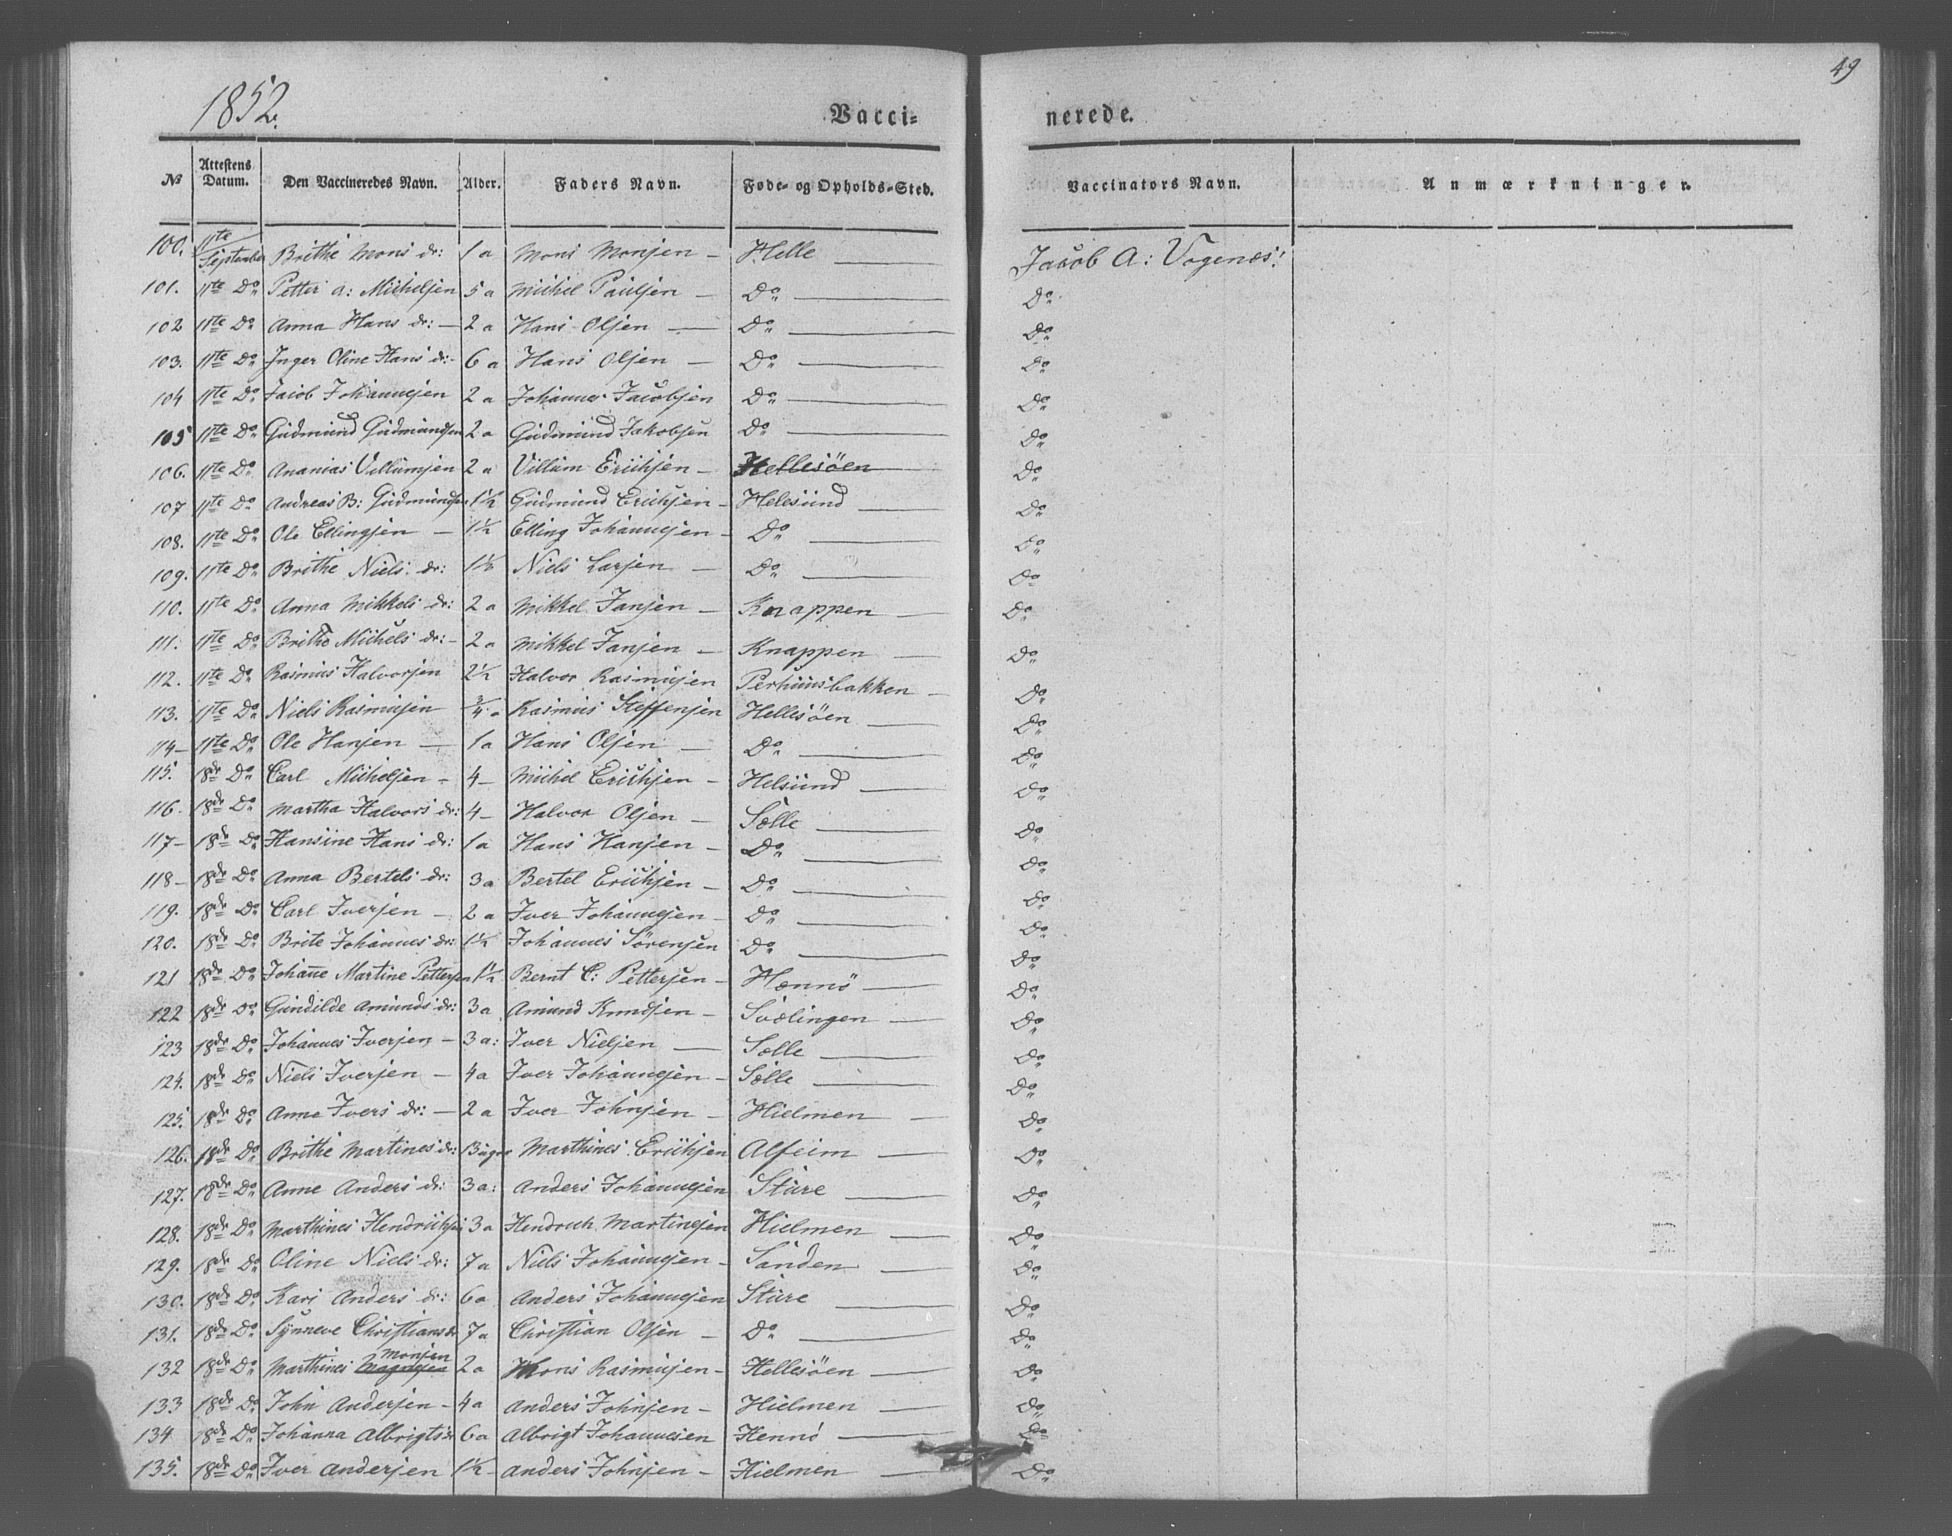 1852.
Vacci= nerede.
49
№ Attestens Datum. Den Vaccineredes Navn. Alder. Faders Navn. Føde- og Opholds-Sted. Vaccinators Navn. Anmærkninger.
100. 11te September Brithe Mons dr: 1 a Mons Monsen — Helle — Jacob A: Vogenes!
101. 11te Do Petter A: Michelsen 5 a Michel Paulsen — Do — Do
102 11te Do Anna Hans dr: — 2 a Hans Olsen — Do — Do
103. 11te Do Inger Oline Hans dr:- 6 a Hans Olsen — Do — Do
104 11te Do Jacob Johannesen 2 a Johannes Jacobsen Do — Do
105 11te Do Gudmund Gudmundsen 2 a Gudmund Jakobsen Do — Do
106. 11te Do Ananias Villumsen 2 a Villum Erichsen — Hellesöen — Do
107 11te Do Andreas B: Gudmundsen 1½ Gudmund Erichsen — Helesund — Do
108. 11te Do Ole Ellingsen — 1½ Elling Johannesen — Do — Do
109. 11te Do Brithe Niels dr: 1½ Niels Larsen — Do — Do
110. 11te Do Anna Mikkels dr: 2 a Mikkel Jansen — Knappen — Do
111. 11te Do Brithe Michels dr: — 2 a Mikkel Jansen — Knappen — Do
112. 11te Do Rasmus Halvorsen 2½ Halvor Rasmusen Perhuusbakken — Do
113. 11te Do Niels Rasmusen ¾ a Rasmus Steffensen Hellesöen — Do
114— 11te Do Ole Hansen — 1 a Hans Olsen — Do — Do
115. 18de Do Carl Michelsen — 4 — Michel Erichsen — Helsund — Do
116. 18de Do Martha Halvors dr: 4 — Halvor Olsen — Sælle — Do
117— 18de Do Hansine Hans dr: 1 a Hans Hansen — Do — Do
118— 18de Do Anna Bertels dr: 3 a Bertel Erichsen — Do — Do
119. 18de Do Carl Iversen — 2 a Iver Johannesen — Do — Do
120. 18de Do Brite Johannes dr: 1½ Johannes Sörensen Do — Do
121 18de Do Johanne Martine Pettersen 1½ Bernt C: Pettersen — Hænnö — Do
122 18de Do Gundilde Amunds dr: 3 a Amund Knudsen — Svælingen — Do
123 18de Do Johannes Iversen — 3 a: Iver Nielsen — Sælle — Do
124. 18de Do Niels Iversen — 4 a Iver Johannesen — Sælle — Do
125. 18de Do Anne Ivers dr: — 2 a Iver Johnsen — Hielmen — Do
126. 18de Do Brithe Martines dr: 13 Marthines Erichsen Alfeim — Do
127. 18de Do Anne Anders dr: 3 a: Anders Johannesen Sture — Do
128. 18de Do Marthines Hendrichsen 3 a Hendrich Martinesen Hielmen — Do
129. 18de Do Oline Niels dr: 7 a Niels Johannesen — Sanden — Do
130. 18de Do Kari Anders dr: 6 a Anders Johannesen Sture — Do
131. 18de Do Synneve Christians dr 7 a Christian Olsen — Do — Do
132 18de Do Marthines Monsen 2 a Mons Rasmusen — Hellesöen — Do
133 18de Do John Andersen — 4 a Anders Johnsen — Hielmen — Do
134 18de Do Johanna Albrigts dr 6 a Albrigt Johannesen Hennö — Do
135. 18de Do Iver Andersen 1½ Anders Johnsen — Hielmen — Do